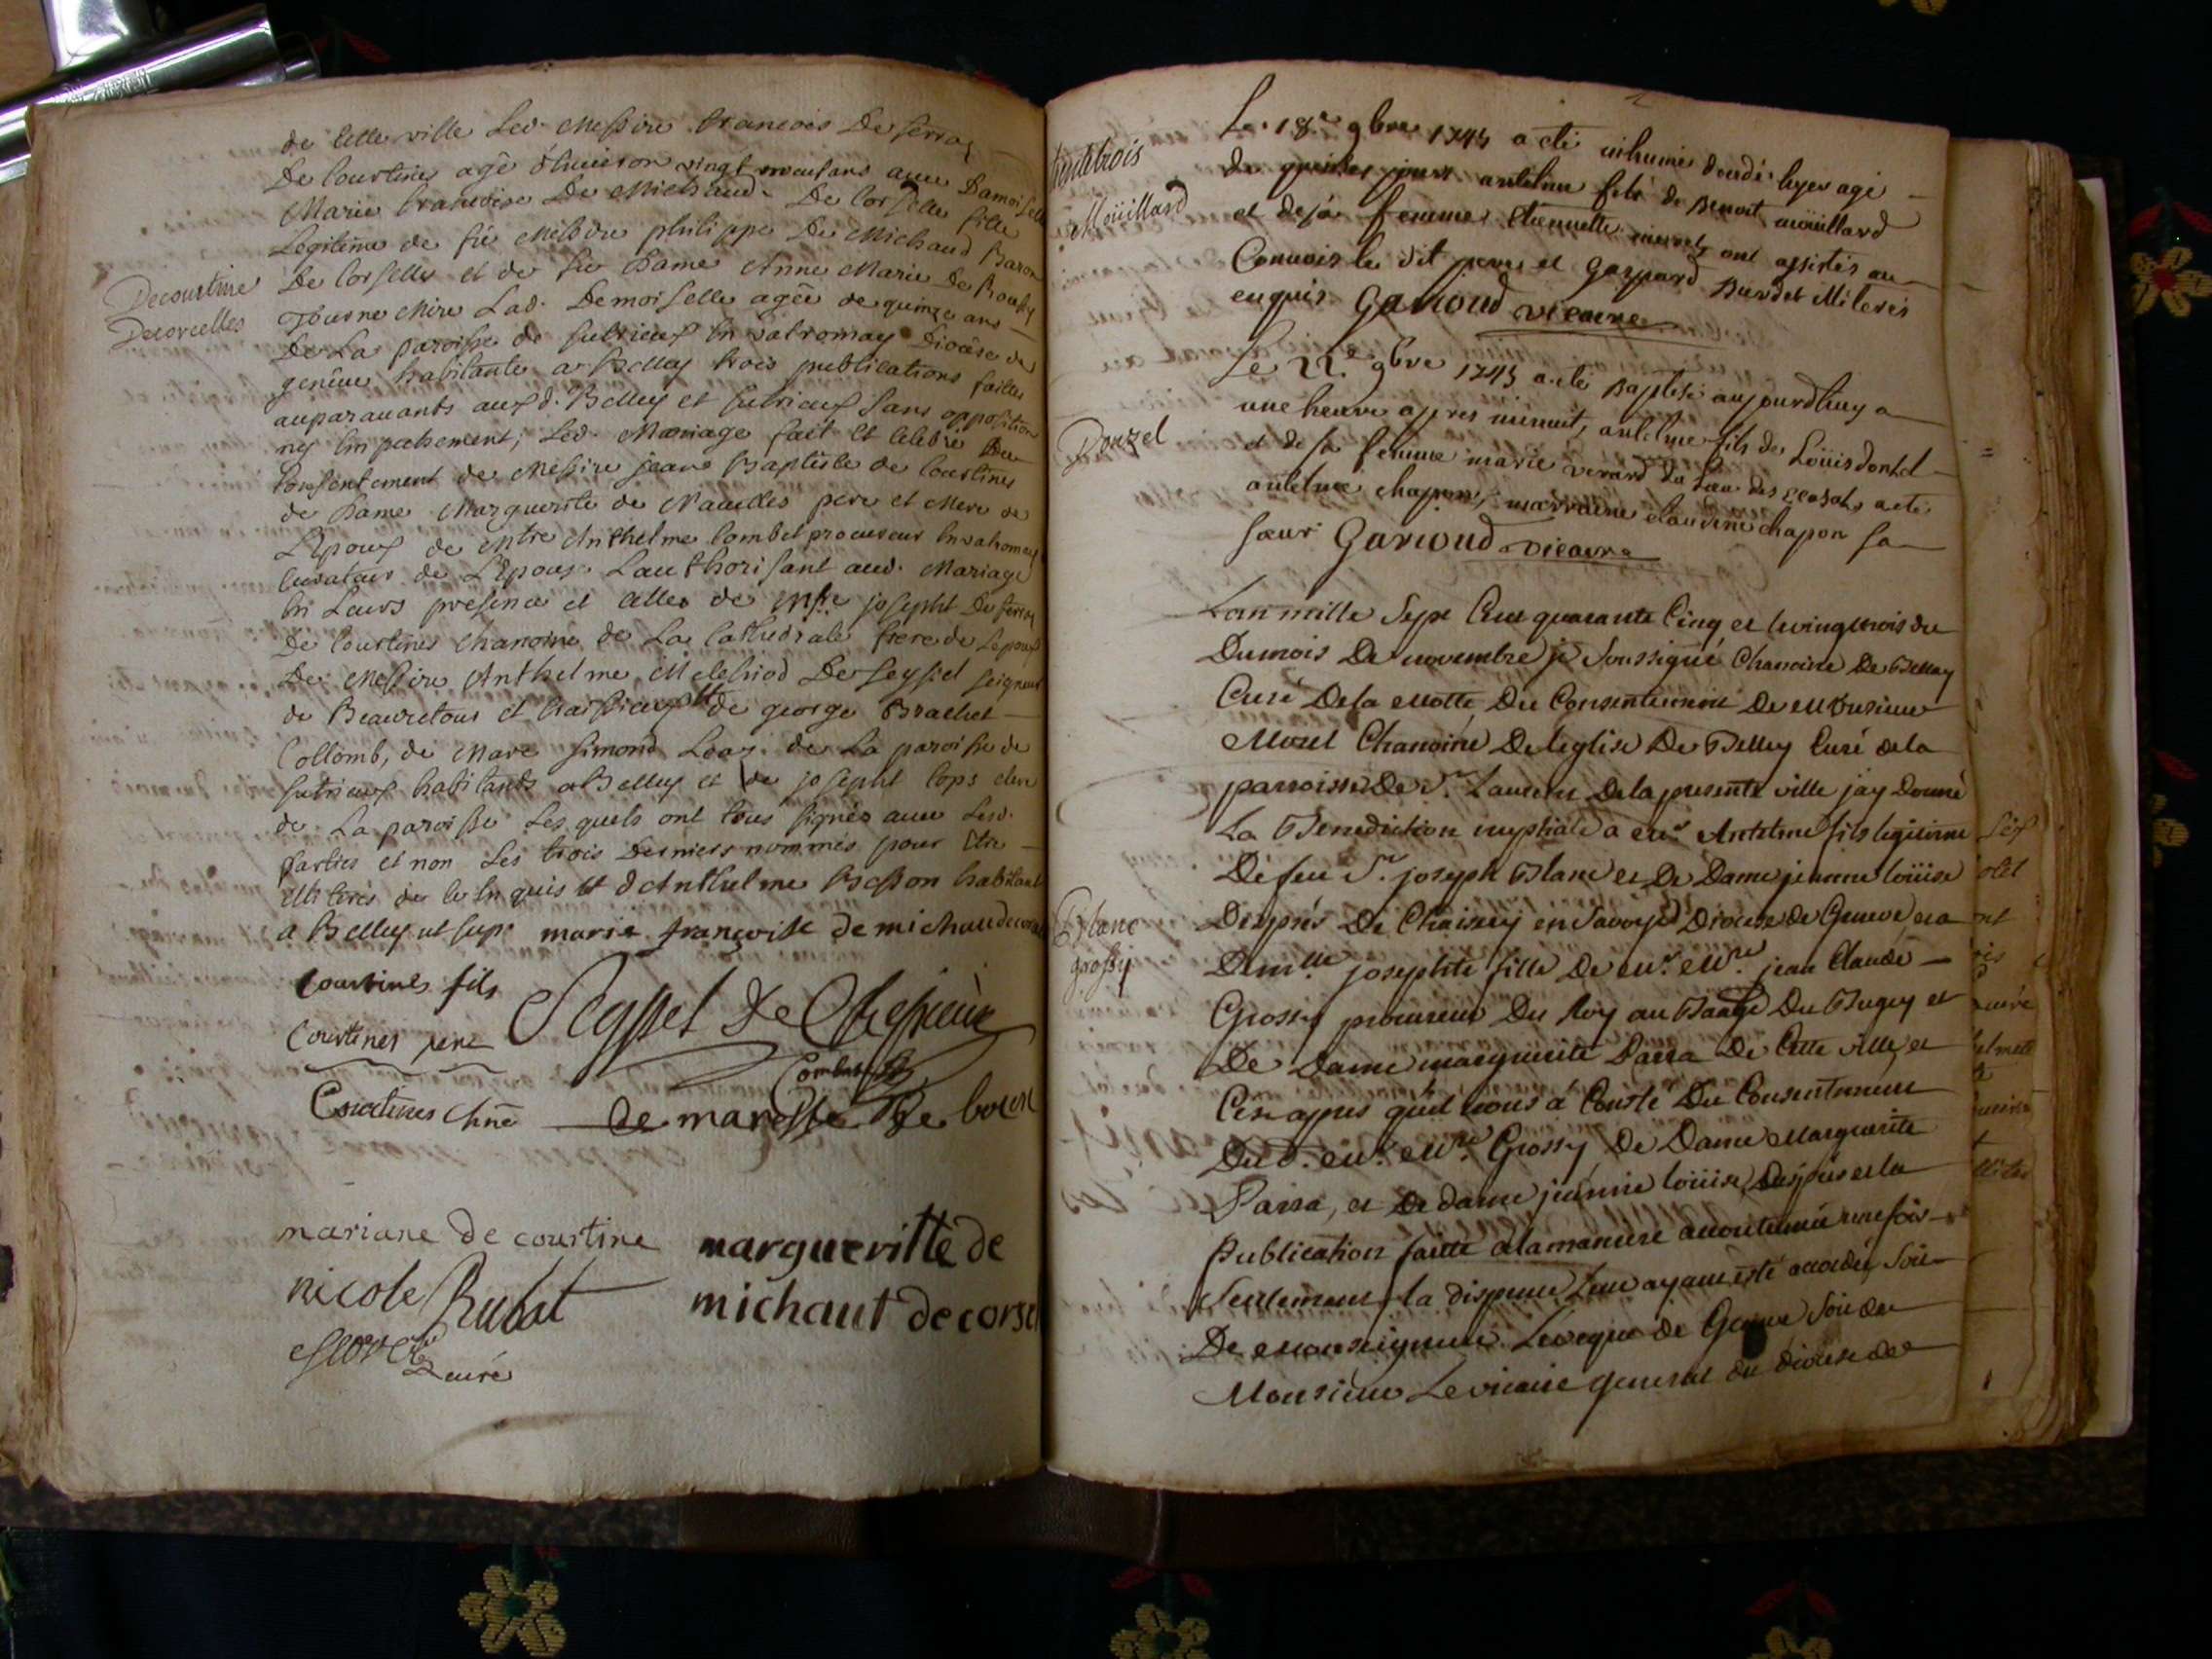 de Cette ville Led. Messire francois De ferra
De Courtines agé d'huieron vingt neuf ans avec Damoiselle
Marie francoise De Michaud De Corselle fille
Legitime de fû Messire philippe De Michaud Baron
De Corselle et de fue Dame Anne Marie De
mere Lad. Demoiselle agée de quinze ans
De La paroisse de sutrieux En valromay Diocèse de
genéve habitante a Belley trois publications faittes
auparavants auxd. Belley et sutrieux sans opposition
ny Empechement; Led. Mariage fait Et Celebré Du
Consentement de Messire jean Baptiste de Courtines
de Dame Marguerite de Navelles pere et Mere de
L'Epoux de Mtre Anthelme Combet procureur En valromey
Curateur de L'Epouse Lauthorisant aud. Mariage
En Leurs presence et Celles de Mre josepht De ferra
De Courtines chanoine de La Cathedrale frere de Lepoux
De Messire Anthelme Melchiod De Seyssel seigneur
de Beauretour et de george Brachet
Collomb, de Marc simond de La paroisse de
sutrieux habitants a Belley et de josepht Cops clerc
de La paroisse Les quels ont tous signés avec Lesd.
parties et non Les trois Derniers nommés pour Etre
illiterés de ce Enquis et d'Anthelme Besson habitant
a Belley ut sup. marie françoise de michaudecorse
Decourtine
Decorcelles
Courtines fils
Courtines pere
Seyssel De
Combet
Courtines Chne
de mareste
mariane de courtine
margueritte de
michaut de corse
nicole Rubat
curé
Le 18e 9bre 1745 a eté inhumé decedé hyer agé
de quinze jours antelme fils de Benoit moüillard
et de sa femme Etiennette ont assistés au
Convois le dit pere et Gaspard Burdet illiterés
enquis. Garioud vicaire
Moüillard
Le 22e 9bre 1745 a eté Baptisé aujourdhuy a
une heure apres minuit, antelme fils de Loüis donzel
et de sa femme marie verard
antelme chapon, marraine claudine chapon sa
sœur Garioud vicaire
Donzel
Lan mille Sept Cent quarante Cinq et le vingtrois du
Du mois De novembre je Soussigné Chanoine De Belley
Curé De la Motte Du Consentement De Monsieur
Morel Chanoine De leglise De Belley Curé de la
parroisse De St. Laurent De la presente ville jay Donné
La Benediction nuptiale a Mr Antelme fils legitime
De feu Sr. joseph Blanc et De Dame jeanne loüise
Desprès De Chaisey en Savoye Diocese de Geneve et a
Demlle josephte fille De Mr. Mre. jean Claude
Grossy procureur Du Roy au Du Bugey et
De Dame marguerite Parra De Cette ville et
Ce apres quil nous a Consté Du Consentement
Dud. Mr. Mre. Grossy De Dame Marguerite
Parra, et De dame jeanne loüise Després et la
Publication faitte a la maniere accoutumée une fois
Seulement, la dispense leur ayant esté accordée Soit
De Monseigneur Leveque de Geneve Soit de
Monsieur Levicaire general du diocese de
Blanc
grossy